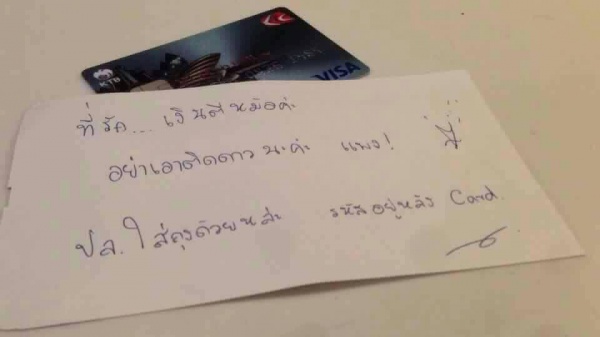 KTB
VISA
ที่รัก... เงินตีหม้อค่ะ
อย่าเอาติดดาวนะค่ะ แพง!
ปล. ใส่ถุงด้วยหล่ะ รหัสอยู่หลัง Card.